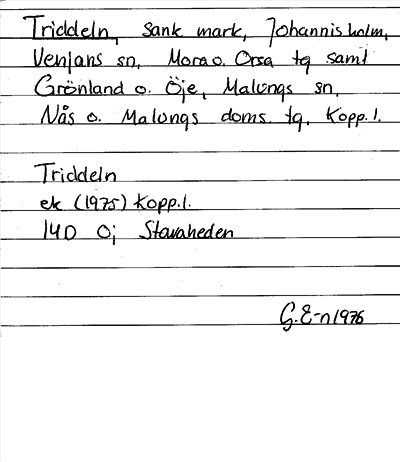 Triddeln, Sank mark, Johannisholm,
Venjans sn, Mora o. Orsa tg samt
Grönland o. Öje, Malungs sn,
Nås o. Malungs doms. tg, Kopp.l.
Triddeln
ek (1975) Kopp.l.
14D 0j Stavaheden
G.E-n 1976